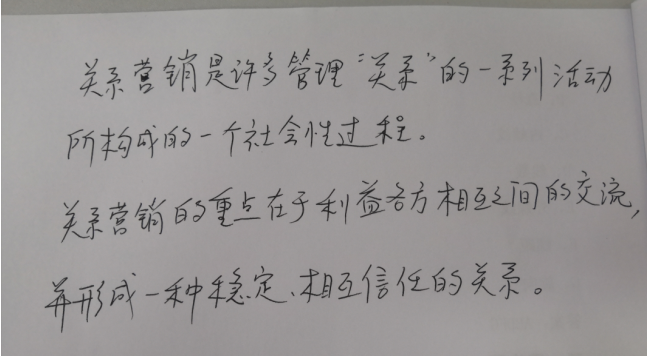 关系营销是许多管理“关系”的一系列活动
所构成的一个社会性过程。
关系营销的重点在于利益各方相互之间的交流,
并形成一种稳定、相互信任的关系。